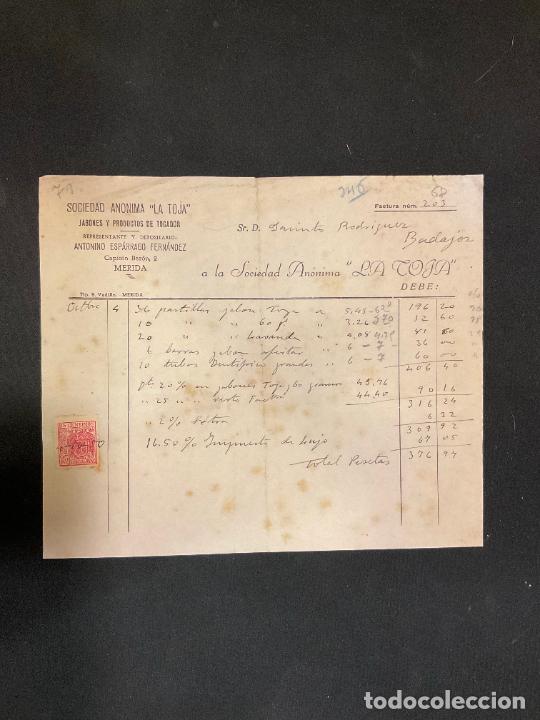 246
68
SOCIEDAD ANONIMA "LA TOJA"
JABONES Y PRODUCTOS DE TOCADOR
REPRESENTANTE Y DEPOSITARIO:
ANTONINO ESPÁRRAGO FERNÁNDEZ
Capitán Bezón, 2
MERIDA
Factura núm. 203
Sr. D. Jacinto Rodriguez
Badajoz
a la Sociedad Anónima "LA TOJA"
DEBE:
Tip. MERIDA
Octbre 4 36 pastillas jabon Toja a 5,45 196 20
10 " " 60 gr " 3.26 12 60
20 " " Lavanda " 4,08 81 60
6 barras jabon afeitar " 6 - 7 36 00
10 tubos Dentifrico grandes " 6 - 7 60 00
406 40
20% en jabones Toja y 60 gramos 45,76
" 25 " resto Factra 44.40 90 16
316 24
" 2% 6 32
309 92
16.50% Impuesto de lujo 67 05
Total Pesetas 376 97
todocoleccion.net